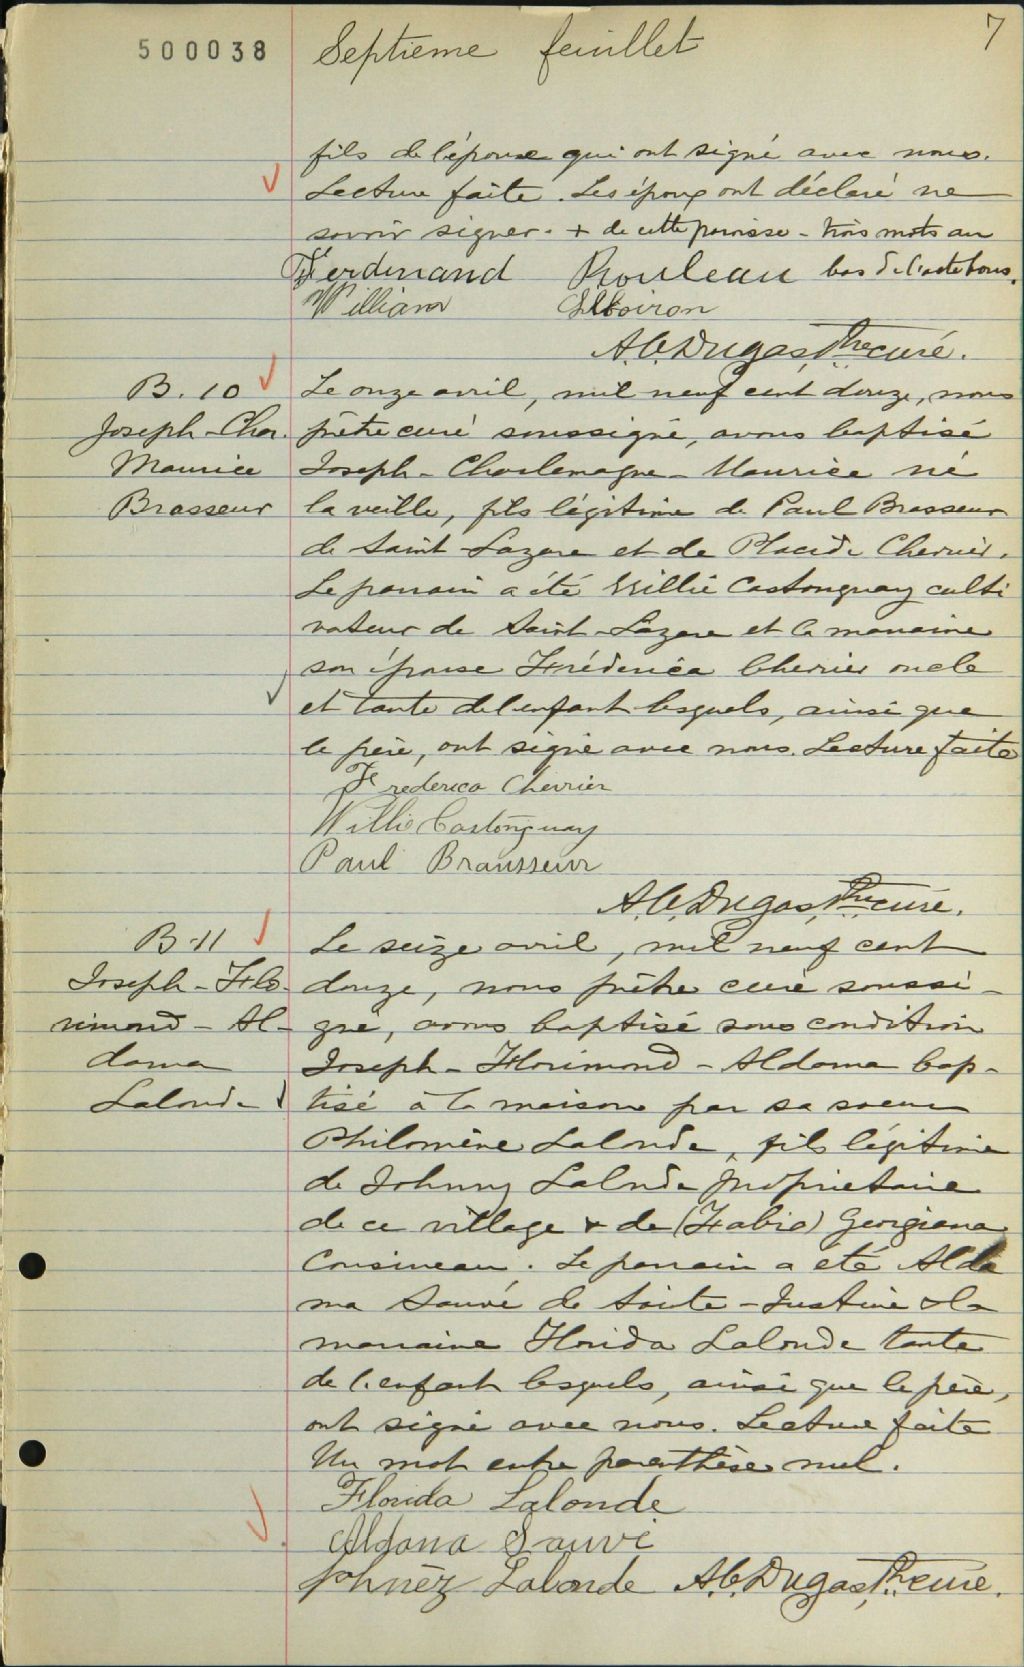 7
500038 Septième feuillet
fils de l'épouse qui ont signé avec nous.
Lecture faite. Les époux ont déclaré ne
savoir signer. + de cette paroisse - trois mots au
Ferdinand Rouleau bas de l'acte bons.
William
A.C. Dugas, Ptre curé.
B. 10
Joseph-Char.
Maurice
Brasseur
Le onze avril, mil neuf cent douze, nous
prêtre curé soussigné, avons baptisé
Joseph-Charlemagne-Maurice né
la veille, fils légitime de Paul Brasseur
de Saint-Lazare et de Placide Chevrier.
Le parrain a été Willie Castonguay culti
vateur de Saint-Lazare et la marraine
son épouse Frédérica Chevrier oncle
et tante de l'enfant lesquels, ainsi que
le père, ont signé avec nous. Lecture faite
Frederica Chevrier
Willie Castonguay
Paul Brausseur
A.C. Dugas, Ptre curé.
B-11
Joseph-Flo-
rimond-Al-
dama
Lalonde
Le seize avril, mil neuf cent
douze, nous prêtre curé soussi-
gné, avons baptisé sous condition
Joseph-Florimond-Aldama bap-
tisé à la maison par sa soeur
Philomène Lalonde, fils légitime
de Johnny Lalonde propriétaire
de ce village & de (Fabio) Georgiana
Cousineau. Le parrain a été Alda
ma Sauvé de Sainte-Justine & la
marraine Florida Lalonde tante
de l'enfant lesquels, ainsi que le père,
ont signé avec nous. Lecture faite
Un mot entre parenthèse nul.
Florida Lalonde
Aldama Sauvé
Lalonde A.C. Dugas, Ptre curé.